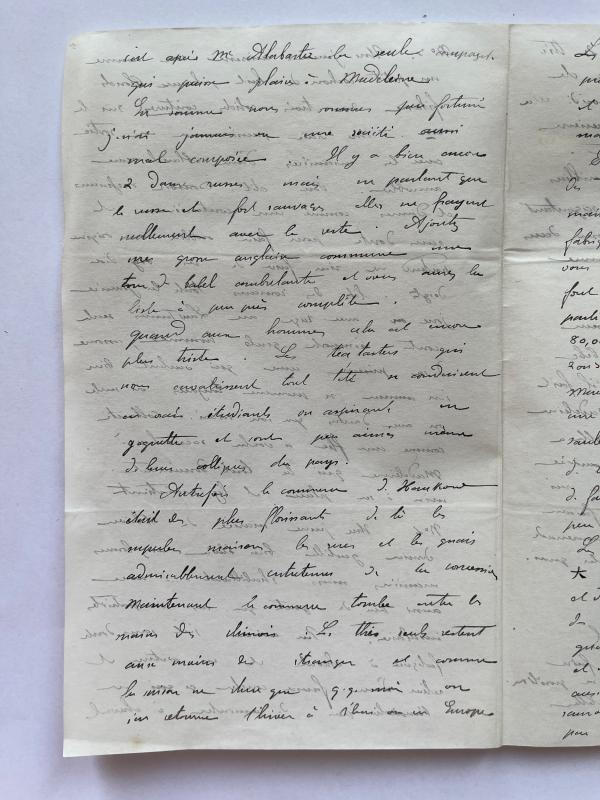 c'est après Mr Alabaster la seule compagnie
qui puisse plaire à Madeleine
En somme nous sommes peu fortunés
j'avais jamais vu une société aussi
mal composée Il y a bien encore
2 Dames russes mais ne parlant que
le russe et fort sauvages elles ne frayent
nullement avec le reste. Ajoutez
une grosse anglaise commune une
tour de babel ambulante et vous aurez la
liste à peu près complète.
quand aux hommes cela est encore
plus triste. Les tea tasters qui
nous envahissent tout l'été se conduisent
en vrais étudiants ou aspirants en
goguette et sont peu aimés même
de leurs collègues du pays.
Autrefois le commerce de Hankow
était des plus florissant de là les
superbes maisons les rues et les quais
admirablement entretenus de la concession
Maintenant le commerce tombe entre les
mains des chinois. Les thés seuls restent
aux mains des étranger et comme
la saison ne dure que q.q. mois on
s'en retourne l'hiver à Shai ou en Europe
Les
pre
mo
Des
mai
fabriq
vous
font
parle
80,00
2 ou 3
Mais
aux
saute
d'
peu
Le
et
de
et
aus
sauv
pou